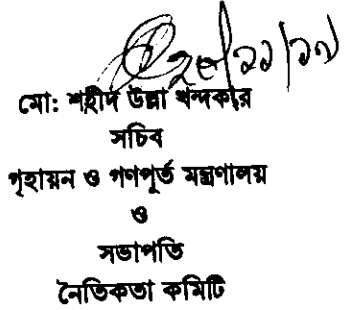 ২০/১১/১৭
মো: শহীদ উল্লা খন্দকার
সচিব
গৃহায়ন ও গণপূর্ত মন্ত্রণালয়
ও
সভাপতি
নৈতিকতা কমিটি